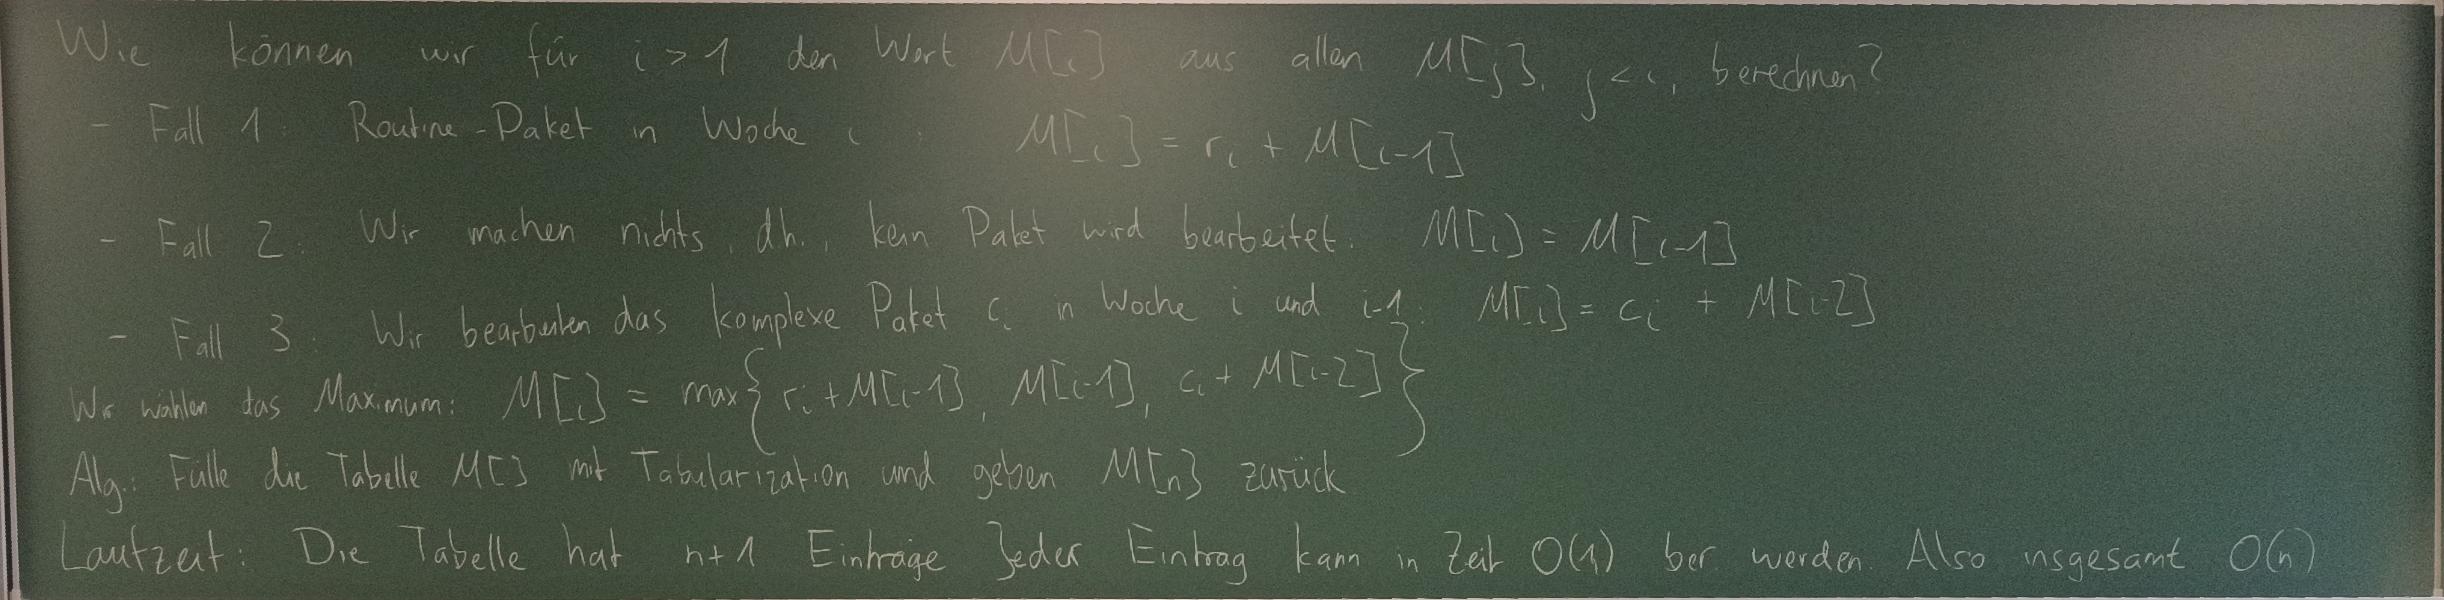 Wie können wir für i > 1 den Wert M[i] aus allen M[j], j < i, berechnen?
- Fall 1: Routine-Paket in Woche i : M[i] = r_i + M[i-1]
- Fall 2: Wir machen nichts, dh., kein Paket wird bearbeitet. M[i] = M[i-1]
- Fall 3: Wir bearbeiten das komplexe Paket c_i in Woche i und i-1: M[i] = c_i + M[i-2]
Wir wählen das Maximum: M[i] = max{ r_i + M[i-1], M[i-1], c_i + M[i-2] }
Alg.: Fülle die Tabelle M[] mit Tabularization und geben M[n] zurück
Laufzeit: Die Tabelle hat n+1 Einträge Jeder Eintrag kann in Zeit O(1) ber. werden. Also insgesamt O(n)